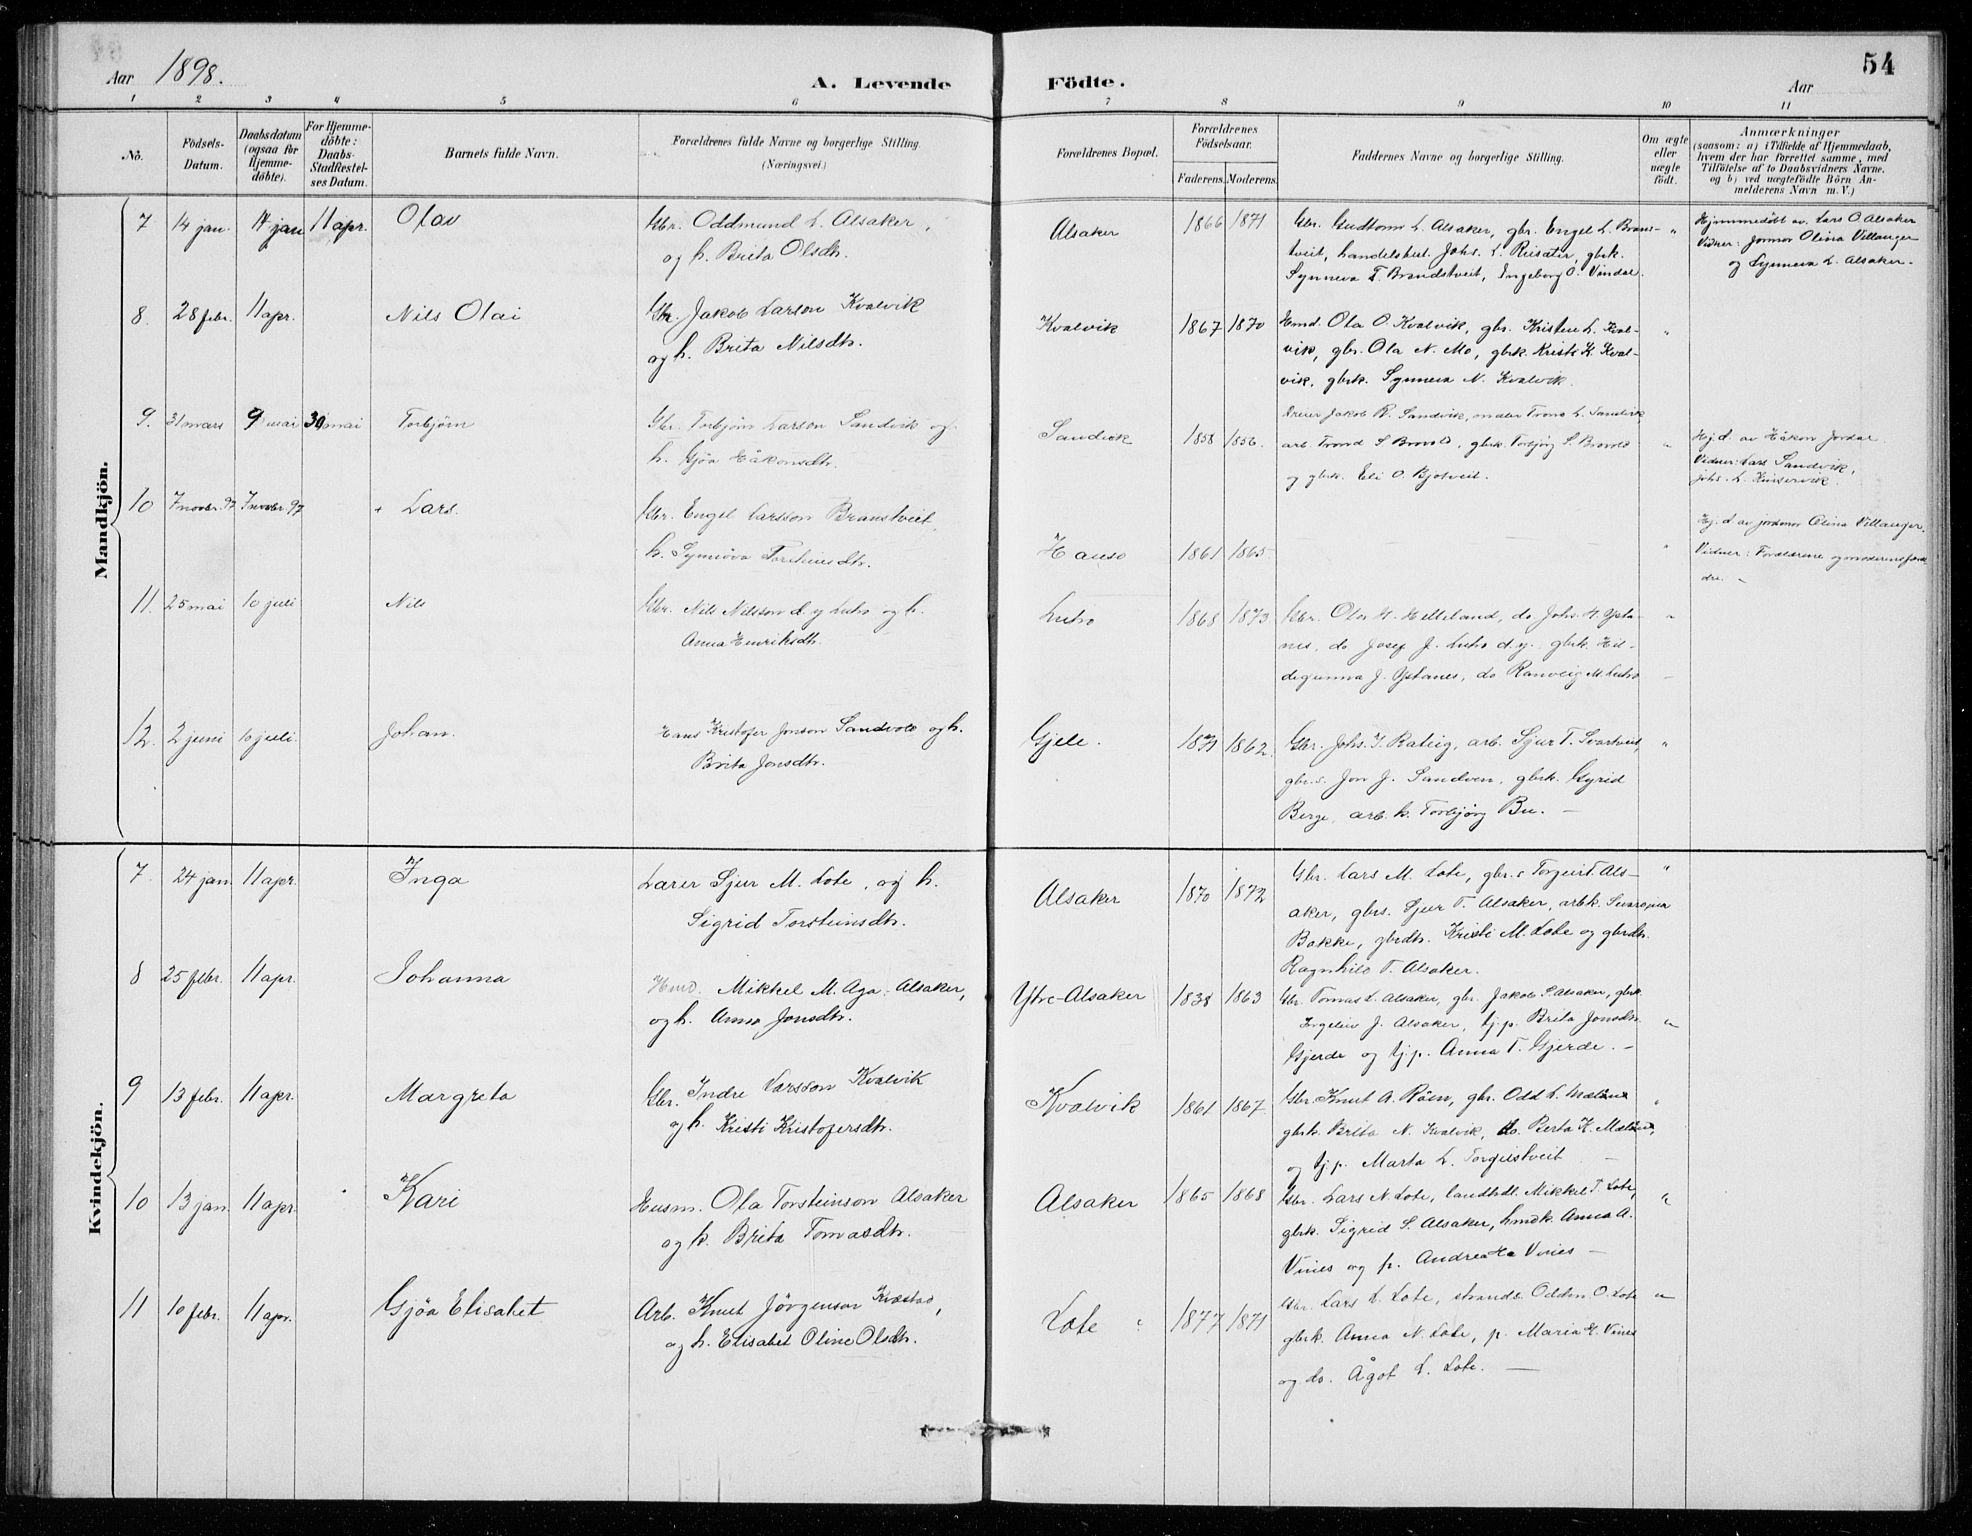 54
Aar 1898.
A. Levende Födte.
Aar
1 2 3 4 5 6 7 8 9 10 11
No.
Födsels-Datum.
Daabsdatum (ogsaa for Hjemme-döbte).
For Hjemme-döbte: Daabs-Stadfæstel-ses Datum.
Barnets fulde Navn.
Forældrenes fulde Navne og borgerlige Stilling.
(Næringsvei.)
Forældrenes Bopæl.
Forældrenes Födselsaar.
Faderens. Moderens.
Faddernes Navne og borgerlige Stilling.
Om ægte eller uægte födt.
Anmærkninger
(saasom: a) i Tilfælde af Hjemmedaab,
hvem der har forrettet samme, med
Tilföielse af to Daabsvidners Navne.
og b) ved uægtefödte Börn An-
melderens Navn m. V.)
Mandkjön.
7 14 jan. 14 jan 11 apr. Olav
Gbr. Oddmund L. Alsaker,
og h. Brita Olsdtr.
Alsaker 1866 1871
Gbr. Gudthorm L. Alsaker, gbr. Engel L. Brans-
tveit, handelsbest. Johs. L. Reisæter, gbrk.
Synneva T. Brandstveit, Engeborg O. Vindal.
"
Hjemmedøbt av Lars O. Alsaker
Vidner: Jormor Olina Villanger
og Synneva L. Alsaker.
8. 28 febr. 11 apr. Nils Olai
Gbr. Jakob Larson Kvalvik
og h. Brita Nilsdtr.
Kvalvik 1867 1870
Hmd. Ola O. Kvalvik, gbr. Kristen L. Kval-
vik, gbr. Ola N. Mo, gbrk. Kristi K. Kval-
vik, gbrk. Synneva N. Kvalvik.
"
9. 31 mars 9 mai 30 mai Torbjörn
Gbr. Torbjörn Larson Sandvik og
h. Gjöa Håkonsdtr.
Sandvik 1858 1856.
Dreier Jakob R. Sandvik, maler Trond L. Sandvik
arb. Trond S. Bravold, gbrk. Torbjörg S. Bravold
og gbrk. Eli O. Bjotveit.
"
Hj. d. av Håkon Jordal
Vidner: Lars Sandvik,
Johs. L. Kinservik.
10 7 novbr. 97 7 novbr. 97 + Lars.
Gbr. Engel Larsson Branstveit,
h. Synnöva Torsteinsdtr.
Hauso 1861 1865
"
Hj. d. av jordmor Olina Villanger.
Vidner: Forældrene og moderens foræl
dre.
11. 25 mai 10 juli Nils
Gbr. Nils Nilsson d. y. Lutro og h.
Anna Henriksdtr.
Lutro 1868 1873.
Gbr. Olav H. Helleland, do Johs. H. Ysta-
nes, do Josef J. Lutro d. y. gbrk. Hil-
degunna J. Ystanes, do Ranveig M. Lutro
"
12. 2 juni 10 juli. Johan.
Hans Kristofer Jonson Sandven og h.
Brita Jonsdtr.
Gjele. 1871 1862.
Gbr. Johs. J. Rateig, arb. Sjur T. Svartveit,
gbr.s. Jon J. Sandven, gbrk. Gyrid
Berge, arb. k. Torbjörg Bu.
"
Kvindekjön.
7 24 jan. 11 apr. Inga
Lærer Sjur M. Lote, og h.
Sigrid Torsteinsdtr.
Alsaker 1870 1872
Gbr. Lars M. Lote, gbr. s Torgeir T. Als-
aker, gbrs. Sjur T. Alsaker, arbk.
Bakke, gbrdtr. Kristi M. Lote og gbrdtr.
Ragnhild T. Alsaker.
"
8 25 febr. 11 apr. Johanna
Hmd. Mikkel M. Aga-Alsaker,
og h. Anna Jonsdtr.
Ytre-Alsaker 1838 1863
Gbr. Tomas L. Alsaker, gbr. Jakob S. Alsaker, gbrk.
Ingeleiv J. Alsaker, tj.p. Brita Jonsdtr.
Gjerde og tj.p. Anna T. Gjerde.
"
9 13 febr. 11 apr. Margreta
Gbr. Indre Larsson Kvalvik
og h. Kristi Kristofersdtr.
Kvalvik 1861 1867
Gbr. Knut A. Röen, gbr. Odd L. Mæland
gbrk. Brita N. Kvalvik, do. Berta K. Mæland,
og tj.p. Marta L. Torgilstveit
"
10 13 jan. 11 apr. Kari
Husm. Ola Torsteinson Alsaker
og h. Brita Tomasdtr.
Alsaker 1865 1868
Gbr. Lars N. Lote, landhdl. Mikkel T. Lote,
gbrk. Sigrid S. Alsaker, hmdk. Anna A.
Vines og p. Andrea H Vines
"
11 10 febr. 11 apr. Gjöa Elisabet
Arb. Knut Jörgenson Kvestad,
og h. Elisabet Oline Olsdtr.
Lote 1877 1871
Gbr. Lars L. Lote, strands. Oddm. O. Lote
gbrk. Anna N. Lote, p. Maria H. Vines
og do. Ågot L. Lote.
"